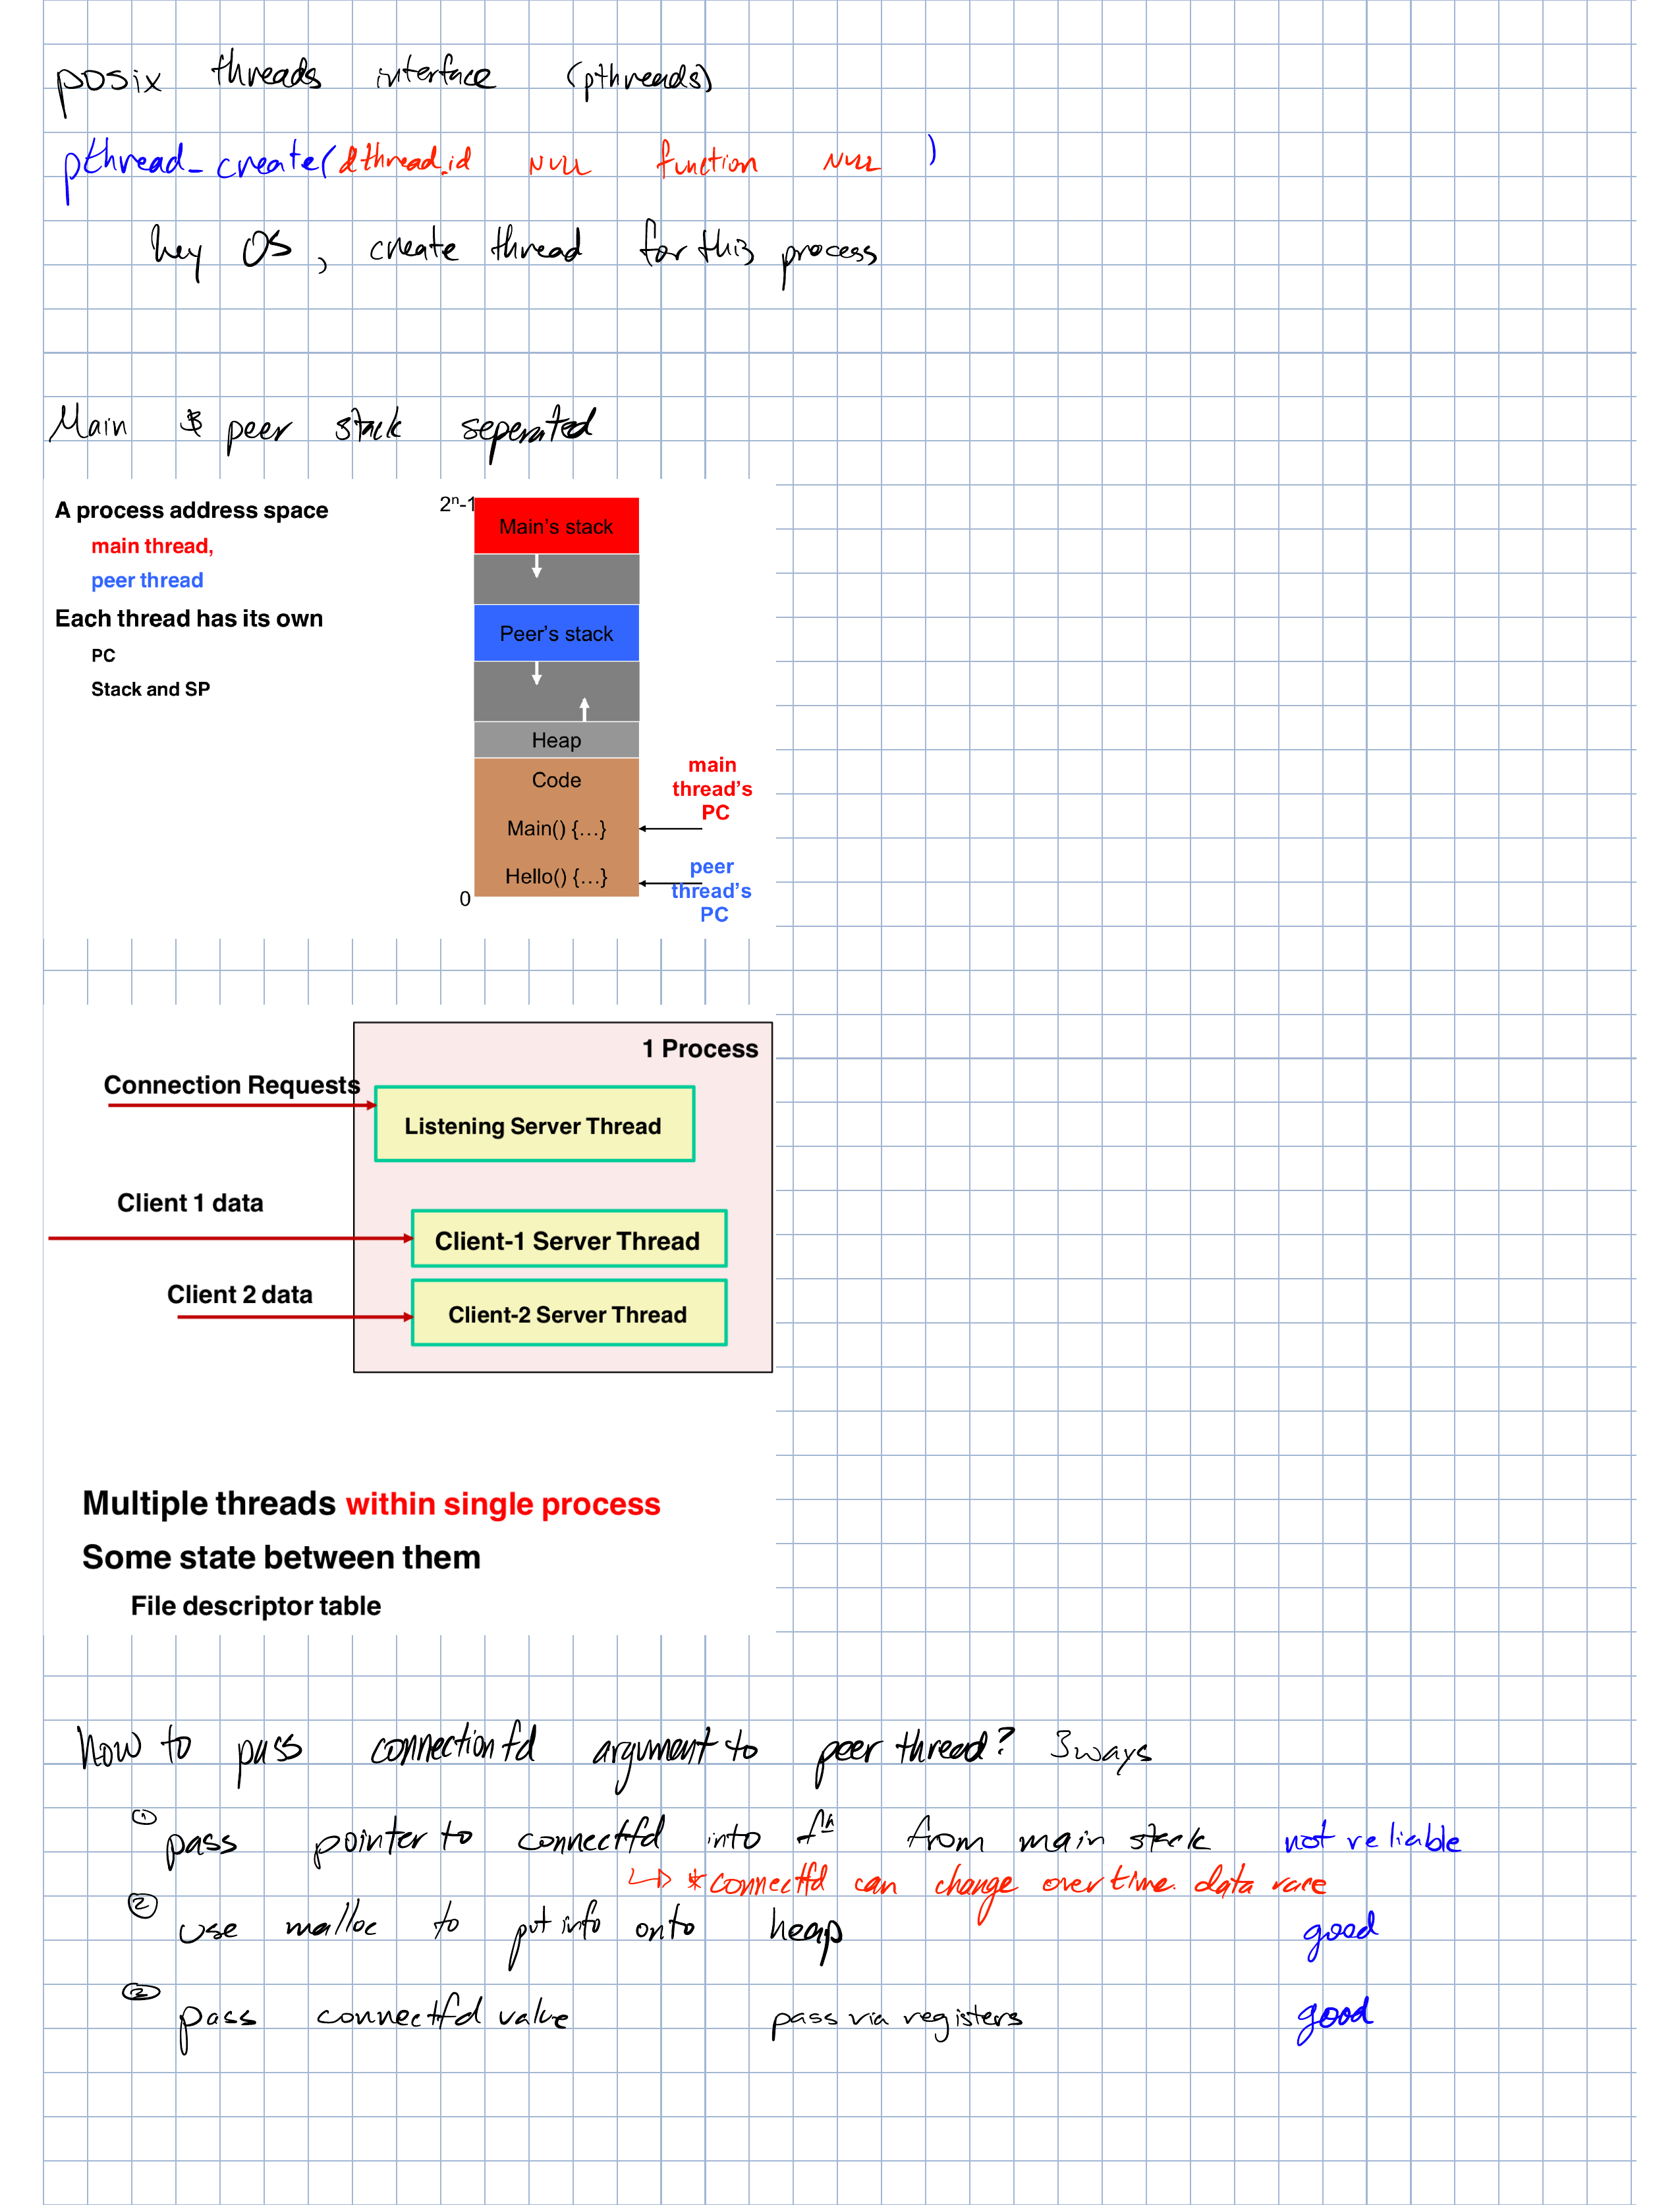 posix threads interface (pthreads)
pthread_create(&thread_id NULL function NULL )
hey OS, create thread for this process
Main & peer stack seperated
A process address space
main thread,
peer thread
Each thread has its own
PC
Stack and SP
2ⁿ-1
Main's stack
Peer's stack
Heap
Code
Main() {…}
Hello() {…}
0
main
thread's
PC
peer
thread's
PC
1 Process
Connection Requests
Listening Server Thread
Client 1 data
Client-1 Server Thread
Client 2 data
Client-2 Server Thread
Multiple threads within single process
Some state between them
File descriptor table
How to pass connectionfd argument to peer thread? 3 ways
① pass pointer to connectfd into fⁿ from main stack not reliable
↳ *connectfd can change over time. data race
② use malloc to put info onto heap good
③ pass connectfd value pass via registers good